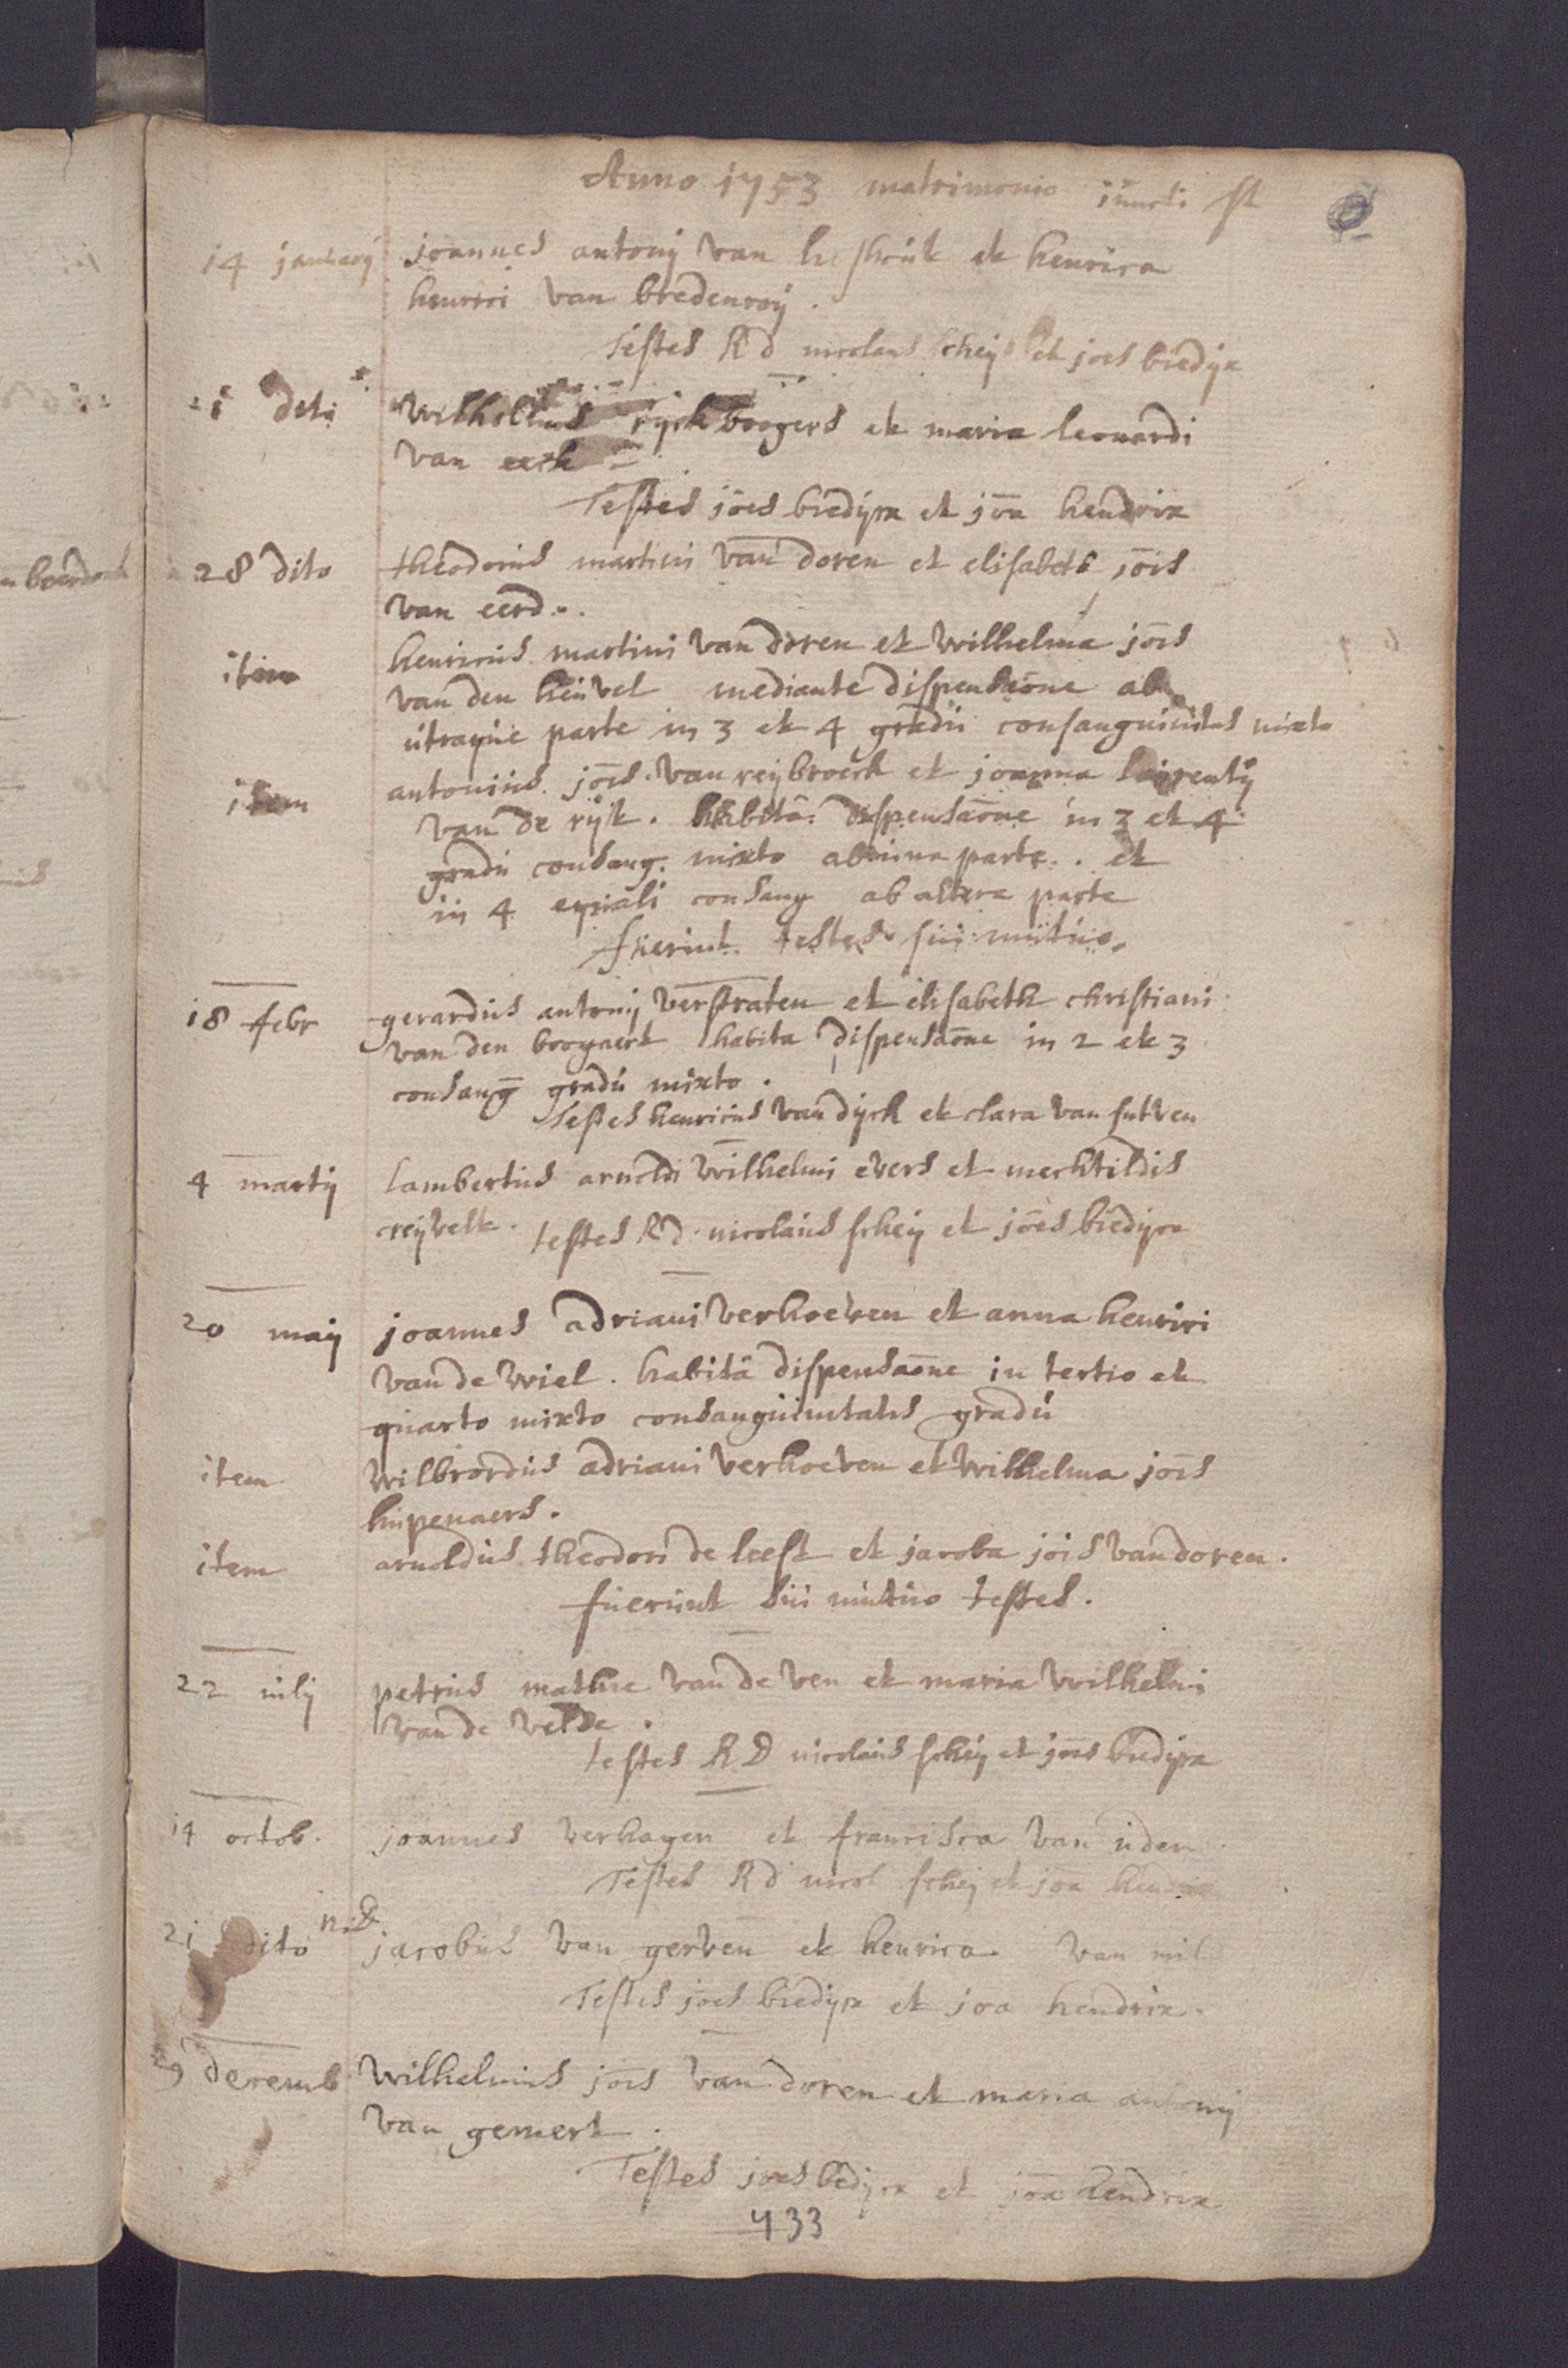 Anno 1753 matrimonio iuncti st
14 january joannes antony van et henrica
henrici van bredenroy.
Testes Rd nicolaus schey et joes bredijx
21 dito Wilhelmus rijckboogers et maria leonardi
van eerk
Testes jōes bredijx et jōa hendrix
28 dito theodorus martini van doren et elisabeth jōis
van eerd..
item henricus martini van doren et Wilhelma jōis
van den heüvel mediante dispensaōne ab
utraque parte in 3 et 4 gradú consanguinitatis mixto
item antonius jōes van reijbroeck et joanna laurentij
van de rijk. habitâ dispensaōne in 3 et 4
gradú consang. mixto ab una parte. et
in 4 equali consang ab altera parte
fuerunt testes sui mutuo.
18 febr gerardus antonij verstraten et elisabeth christiani
van den boogaert habita dispensaōne in 2 et 3
consang gradú mixto.
Testes henricus van dyck et clara van
4 martij Lambertus arnoldi Wilhelmi evers et mechtildis
creijvelt. testes Rd nicolaus schey et jōes bredijx
20 maij joannes adriani verhoeven et anna henrici
van de wiel. habitâ dispensaōne in tertio et
quarto mixto consanguinitatis gradú
item Wilbrordus adriani verhoeven et Wilhelma jōis
huipenaers.
item arnoldus theodori de leest et jacoba jōis van doren.
fuerunt sui mutuo testes.
22 iulij petrus mathie van de ven et maria Wilhelmi
van de velde.
testes RD nicolaus schey et jōes bredijx
14 octob. joannes verhagen et francisca van uden
Testes Rd nicol schey et joa hendrix
21 dito jacobus van gerven et henrica van mil
Testes joes bredijx et joa hendrix.
decemb Wilhelmus jōis van doren et maria antonij
van gemert.
Testes joes bredijx et jōa hendrix
433